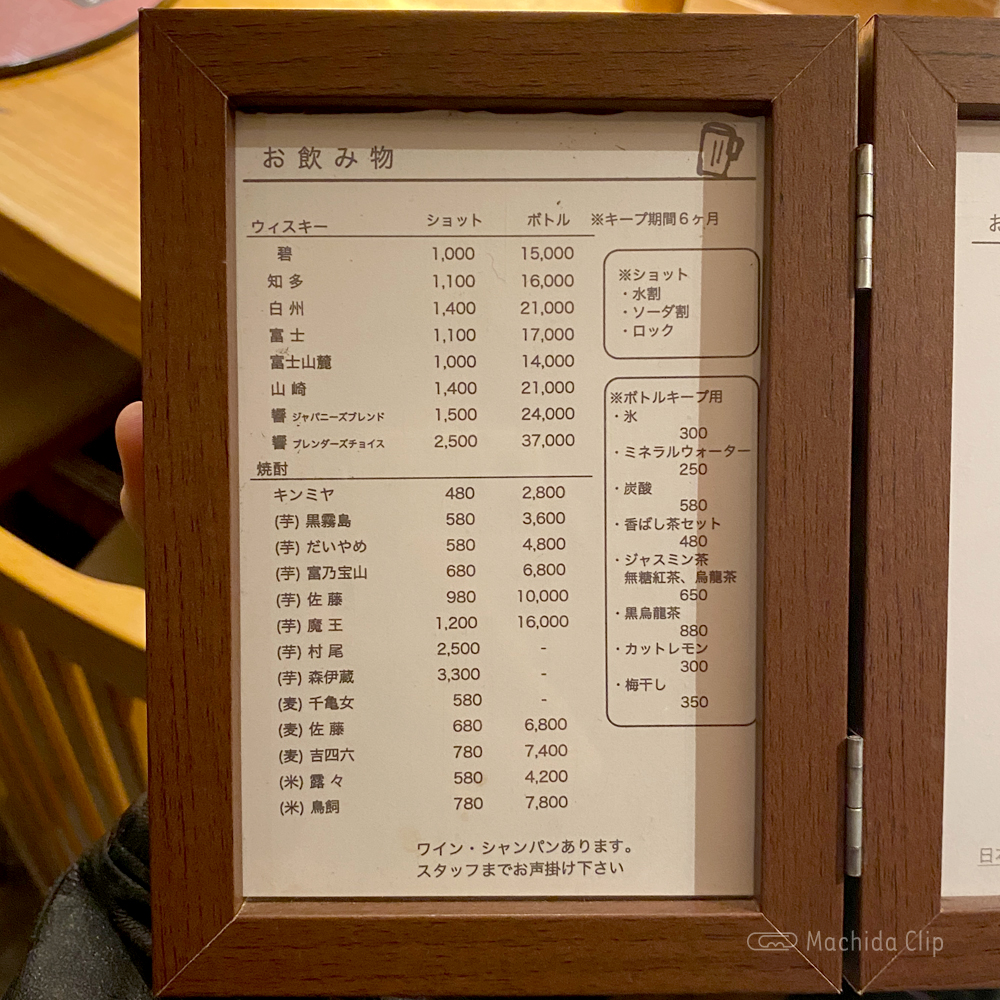 お飲み物
ウィスキー ショット ボトル ※キープ期間6ヶ月
碧 1,000 15,000
知多 1,100 16,000
白州 1,400 21,000
富士 1,100 17,000
富士山麓 1,000 14,000
山崎 1,400 21,000
響 ジャパニーズブレンド 1,500 24,000
響 ブレンダーズチョイス 2,500 37,000
焼酎
キンミヤ 480 2,800
(芋) 黒霧島 580 3,600
(芋) だいやめ 580 4,800
(芋) 富乃宝山 680 6,800
(芋) 佐藤 980 10,000
(芋) 魔王 1,200 16,000
(芋) 村尾 2,500 -
(芋) 森伊蔵 3,300 -
(麦) 千亀女 580 -
(麦) 佐藤 680 6,800
(麦) 吉四六 780 7,400
(米) 露々 580 4,200
(米) 鳥飼 780 7,800
※ショット
・水割
・ソーダ割
・ロック
※ボトルキープ用
・氷
300
・ミネラルウォーター
250
・炭酸
580
・香ばし茶セット
480
・ジャスミン茶
無糖紅茶、烏龍茶
650
・黒烏龍茶
880
・カットレモン
300
・梅干し
350
ワイン・シャンパンあります。
スタッフまでお声掛け下さい
お
日本
Machida Clip